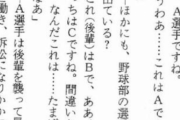 A選手ですね。
うわあ……これはAで
ほかにも、野球部の選
出ている？
これ（後輩）はBで、ああ
ちはCですね。間違い
なんだこれは……たま
A選手は後輩を襲って
が、訴訟になりかか
なあ」